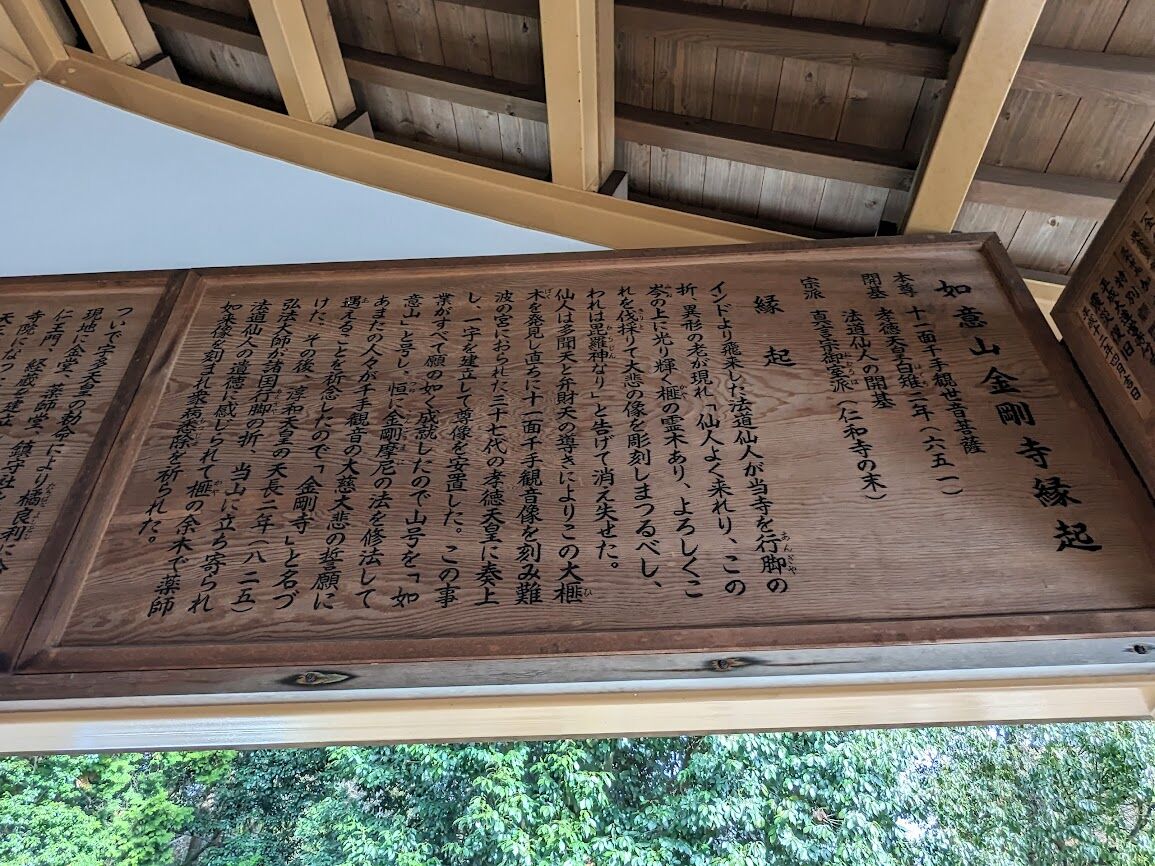 如意山金剛寺縁起
本尊 十一面千手観世音菩薩
開基 孝徳天皇白雉二年（六五一）
法道仙人の開基
宗派 真言宗御室派（仁和寺の末）
縁起
インドより飛来した法道仙人が当寺を行脚の
折、異形の老が現れ「仙人よく来れり、この
岑の上に光り輝く榧の霊木あり、よろしくこ
れを伐採りて大悲の像を彫刻しまつるべし、
われは毘羅神なり」と告げて消え失せた。
仙人は多聞天と弁財天の導きによりこの大榧
木を発見し直ちに十一面千手観音像を刻み難
波の宮におられた三十七代の孝徳天皇に奏上
し、一宇を建立して尊像を安置した。この事
業がすべて願の如く成就したので山号を「如
意山」と号し、恒に金剛摩尼の法を修法して
あまたの人々が千手観音の大慈大悲の誓願に
遇えることを祈念したので「金剛寺」と名づ
けた。その後、淳和天皇の天長二年（八二五）
弘法大師が諸国行脚の折、当山に立ち寄られ
法道仙人の道徳に感じられて榧の余木で薬師
如来像を刻まれ衆病悉除を祈られた。
ついで宇多天皇の勅命により橘良利に
現地に金堂、薬師堂、鎮守社を
仁王門、経蔵を建
寺院になっ